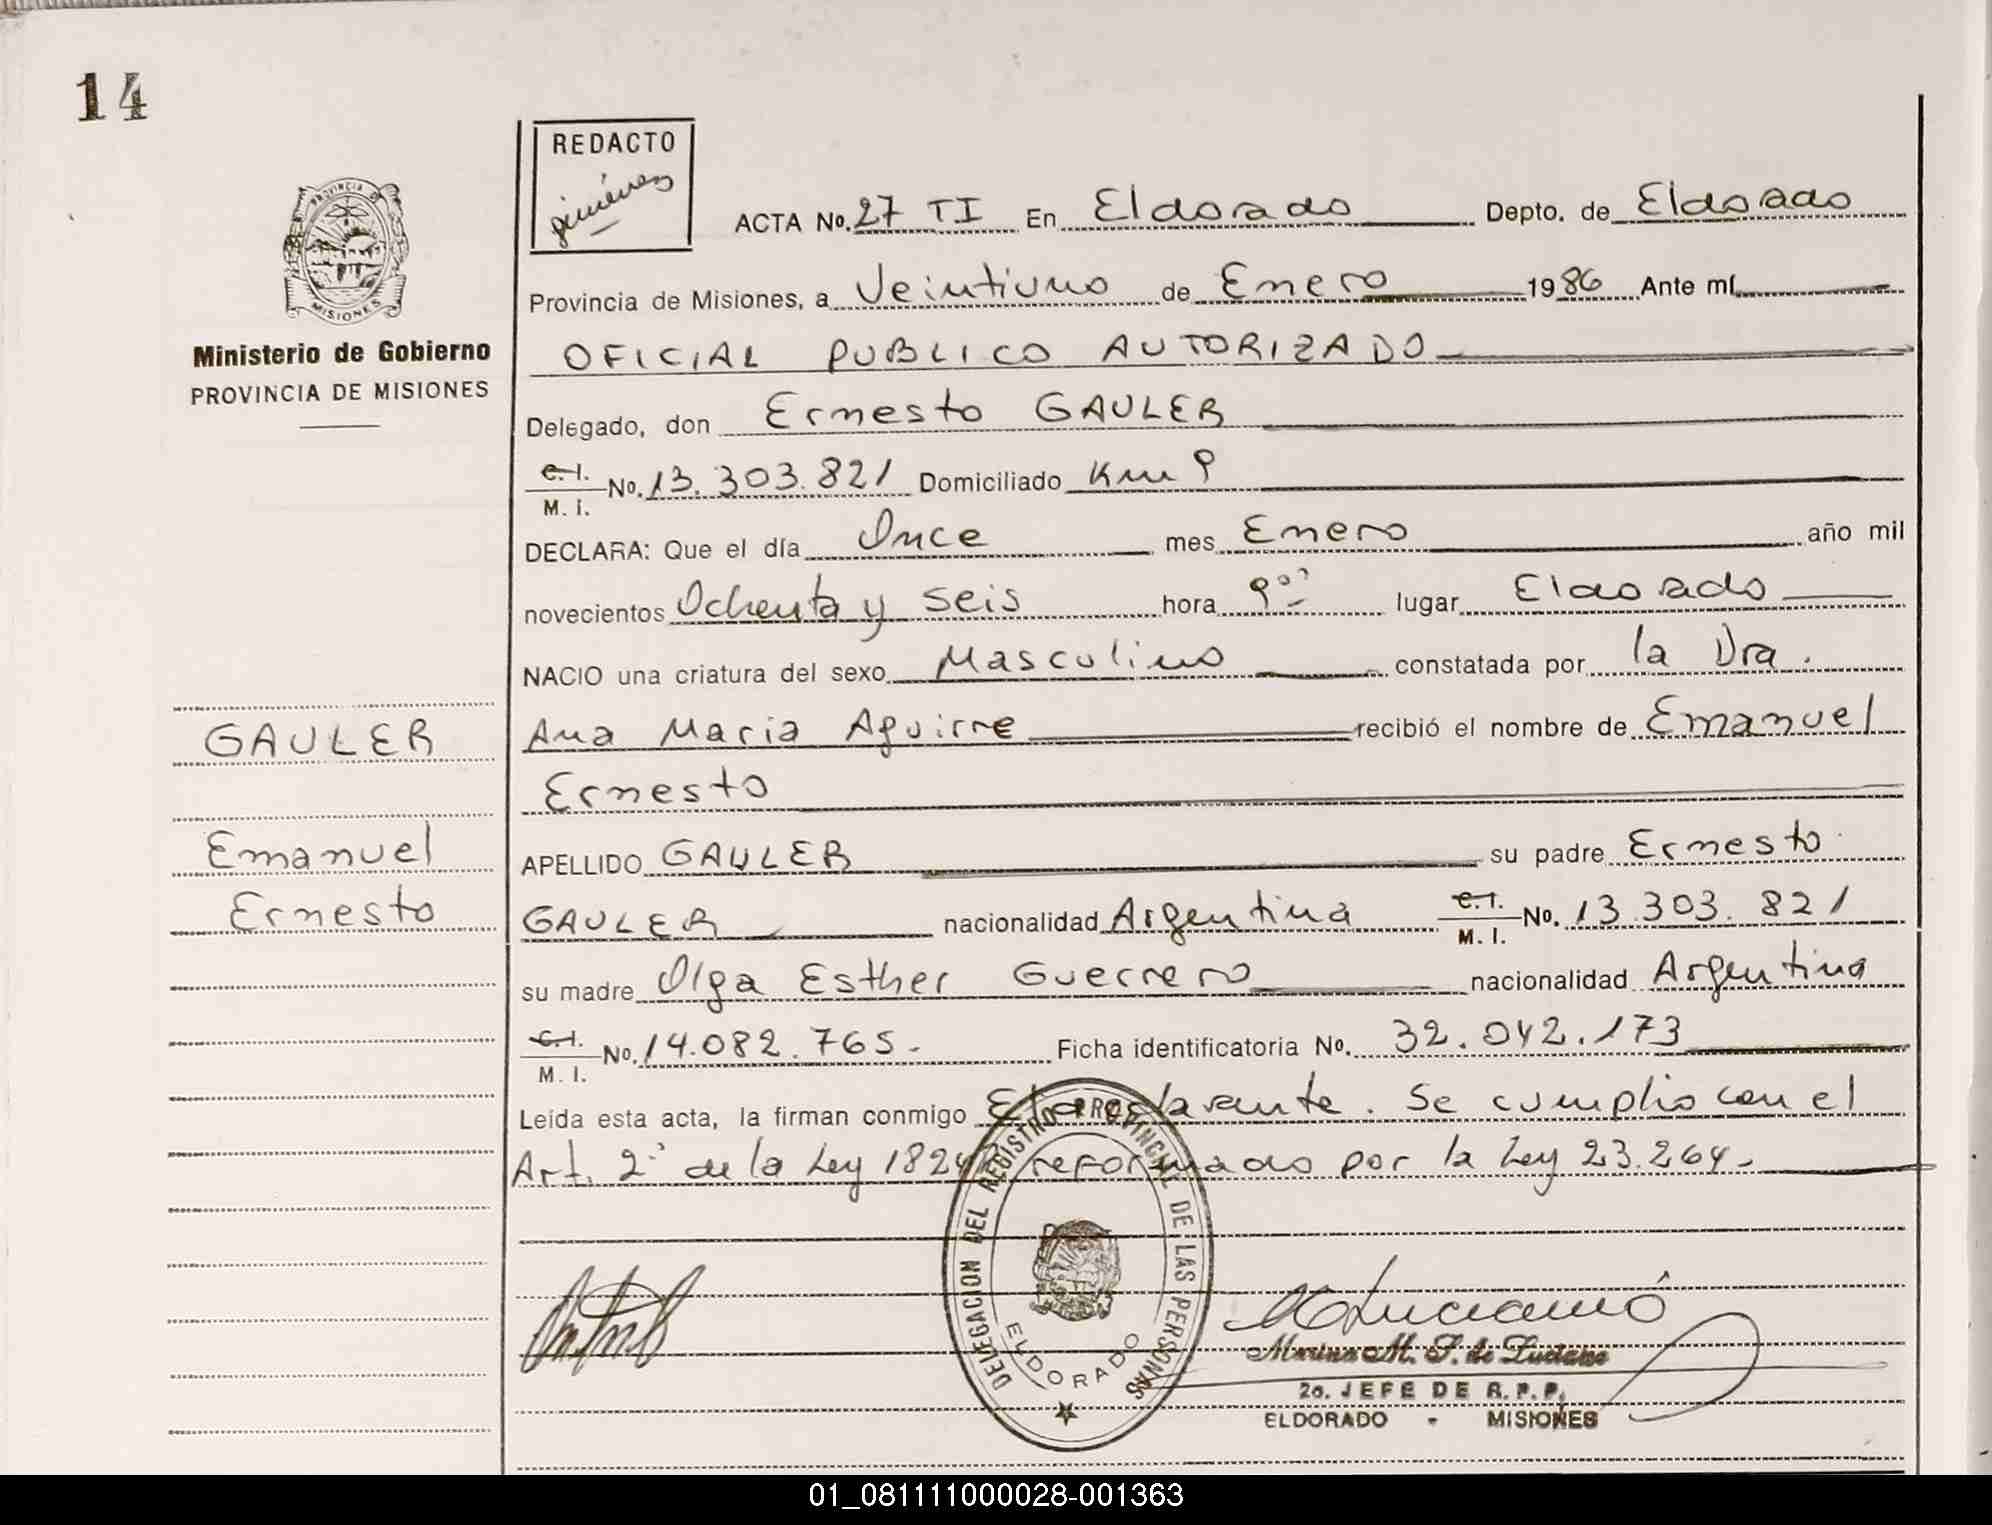 14
REDACTO
giménez
PROVINCIA DE
MISIONES
Ministerio de Gobierno
PROVINCIA DE MISIONES
ACTA No. 27 TI En Eldorado Depto. de Eldorado
Provincia de Misiones, a Veintiuno de Enero 1986 Ante mí
OFICIAL PUBLICO AUTORIZADO
Delegado, don Ernesto GAULER
C.I. M. I. No. 13.303.821 Domiciliado Km 9
DECLARA: Que el día Once mes Enero año mil
novecientos Ochenta y seis hora 9°° lugar Eldorado
NACIO una criatura del sexo Masculino constatada por la Dra.
GAULER
Ana Maria Aguirre recibió el nombre de Emanuel
Ernesto
Emanuel
APELLIDO GAULER su padre Ernesto
Ernesto
GAULER nacionalidad Argentina C.I. M. I. No. 13.303.821
su madre Olga Esther Guerrero nacionalidad Argentina
C.I. M. I. No. 14.082.765.- Ficha identificatoria No. 32.042.173
Leída esta acta, la firman conmigo El declarante. Se cumplio con el
Art. 2° de la Ley reformado por la Ley 23.264.-
DELEGACION DEL REGISTRO PROVINCIAL DE LAS PERSONAS
ELDORADO
Marina M. F. de Luciano
2o. JEFE DE R. P. P.
ELDORADO - MISIONES
01_081111000028-001363